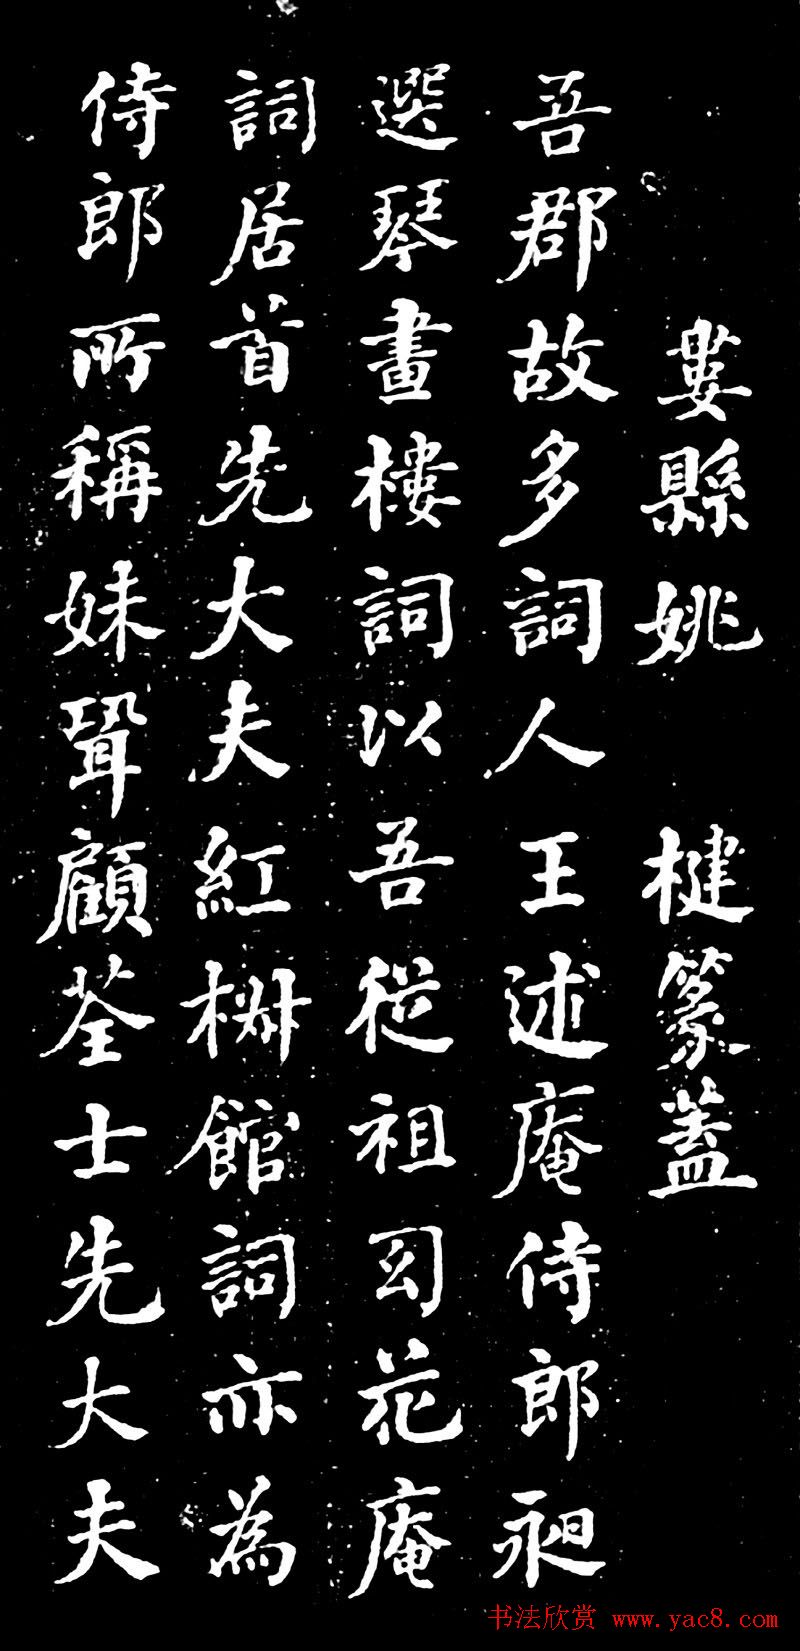 婁縣姚 楗篆葢
吾郡故多詞人王述庵侍郎昶
選琴畫樓詞以吾從祖幻花庵
詞居首先大夫紅柟館詞亦為
侍郎所稱妹聟顧荃士先大夫
书法欣赏 www.yac8.com